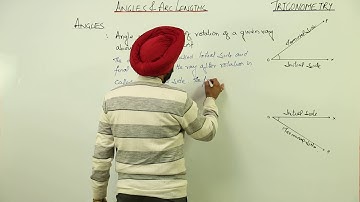 ANGLES & ARC LENGTHS
TRIGONOMETRY
ANGLES
: Angle of rotation of a given ray
about
The Initial Side and
final the ray after rotation is
called side
Terminal Side
O Initial Side X
O Initial Side X
Terminal Side
P